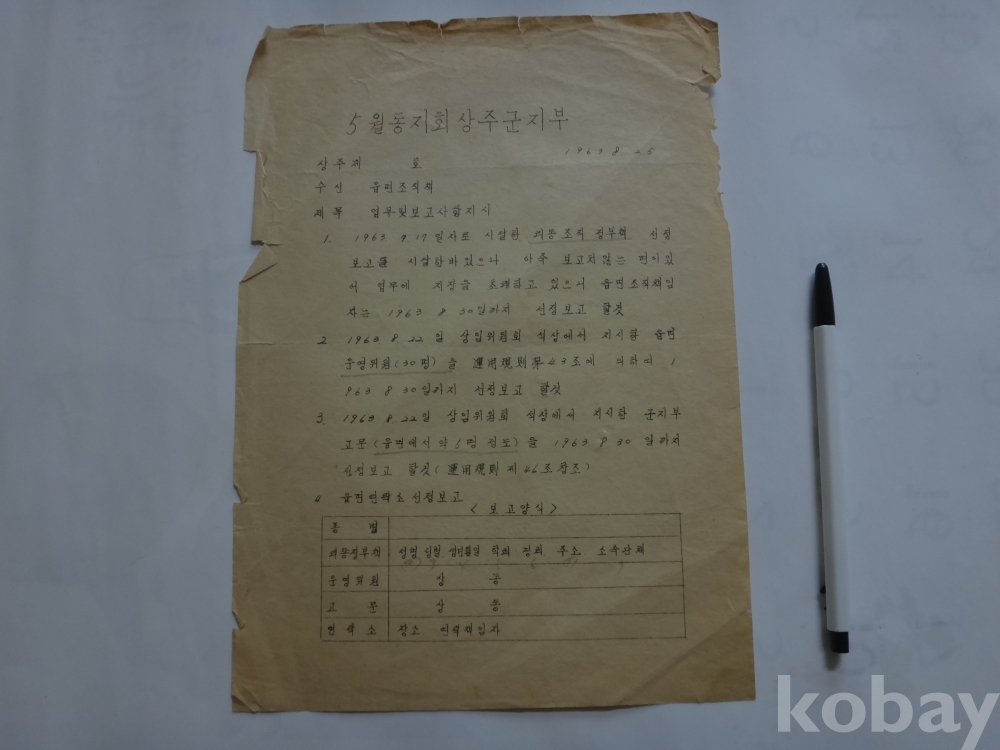 5월동지회상주군지부
1963 8 25
상주제 호
수신 읍면조직책
제목 업무및보고사항지시
1. 1963 8 17일자로 시달한 리동조직 정부책 선정
보고를 시달한바있으나 아주 보고치않는 면이있
어 업무에 지장을 초래하고 있으니 읍면조직책임
자는 1963 8 30일까지 선정보고 할것
2. 1963 8 22일 상임위원회 석상에서 지시한 읍면
운영위원(30명)을 運用規則第43조에 의하여 1
963 8 30일까지 선정보고 할것
3. 1963 8. 22일 상임위원회 석상에서 지시한 군지부
고문(읍면에서 약 5명 정도)을 1963 8 30 일까지
선정보고 할것(運用規則 제46조참조)
4 읍면연락소선정보고
<보고양식>
종별
리동정부책 성명 생년월일 학력 경력 주소 소속관계
운영위원 상동
고문 상동
연락소 장소 연락책임자
kobay